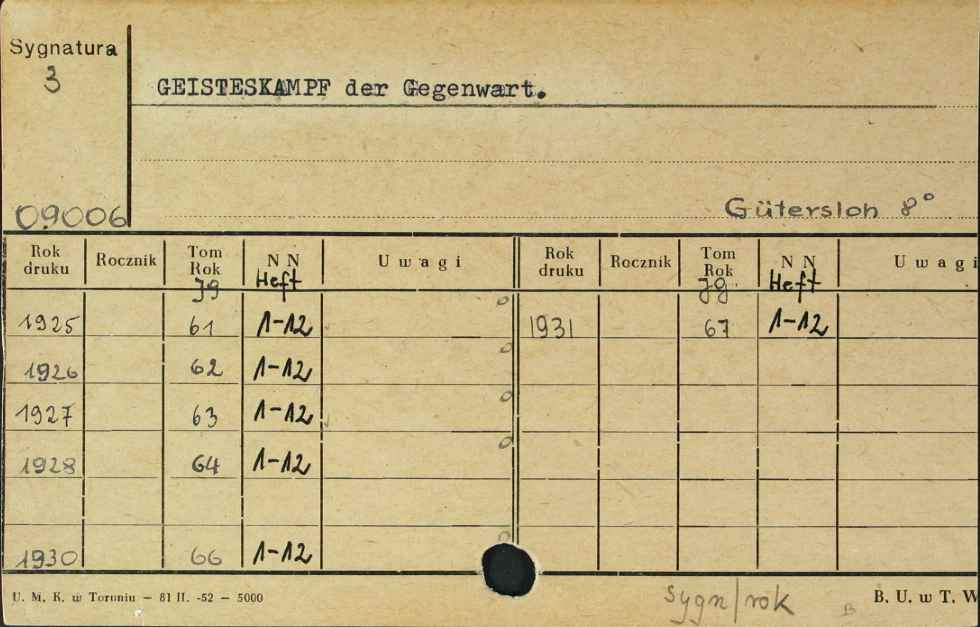 Sygnatura
3
GEISTESKAMPF der Gegenwart.
09006
Gütersloh 8°
Rok druku Rocznik Tom Rok NN Uwagi Rok druku Rocznik Tom Rok NN Uwagi
Jg Heft Jg. Heft
1925 61 1-12 1931 67 1-12
1926 62 1-12
1927 63 1-12
1928 64 1-12
1930 66 1-12
U. M. K. w Toruniu — 81 II. -52 — 5000
Sygn/rok
B
B. U. w T. W